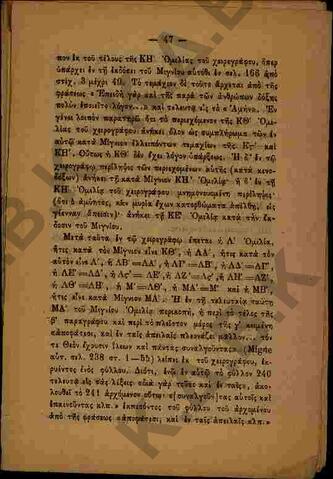 — 47 —
πον ἐκ τοῦ τέλους τῆς ΚΗ΄ Ὁμιλίας τοῦ χειρογράφου, ὅπερ
ὑπάρχει ἐν τῇ ἐκδόσει τοῦ Μιγνίου αὐτόθι ἐν σελ. 166 ἀπὸ
στίχ. 3 μέχρι 40. Τὸ τεμάχιον δὲ τοῦτο ἄρχεται ἀπὸ τῆς
φράσεως «Ἐπειδὴ γὰρ καὶ τῆς παρὰ τῶν ἀνθρώπων δόξης
πολὺν ἐποιεῖτο λόγον...» καὶ τελευτᾷ εἰς τὸ «Ἀμήν». Ἐν
γένει λοιπὸν παρατηρῶ ὅτι τὸ περιεχόμενον τῆς ΚΘ΄ Ὁμι-
λίας τοῦ χειρογράφου ἀνήκει ὅλον ὡς συμπλήρωμα τῶν ἐν
αὐτῷ κατὰ Μίγνιον ἐλλειπόντων τεμαχίων τῆς ΚϚ΄ καὶ
ΚΗ΄. Οὕτως ἡ ΚΘ΄ δὲν ἔχει λόγον ὑπάρξεως. Ἡ δ᾽ ἐν τῷ
χειρογράφῳ περίληψις τῶν περιεχομένων αὐτῆς (κατὰ κενο-
δόξων) ἀνήκει τῇ κατὰ Μίγνιον ΚΗ΄ Ὁμιλίᾳ· ἡ δ᾽ ἐν τῇ
ΚΗ΄ Ὁμιλίᾳ τοῦ χειρογράφου μνημονευομένη περίληψις·
(ὅτι ὁ ἀμύητος, κἂν μυρία ἔχων κατορθώματα ἀπέλθῃ, εἰς
γέενναν ἄπεισιν)· ἀνήκει τῇ ΚΕ΄ Ὁμιλίᾳ κατὰ τὴν ἔκ-
δοσιν τοῦ Μιγνίου.
Μετὰ ταῦτα ἐν τῷ χειρογράφῳ ἕπεται ἡ Λ΄ Ὁμιλία,
ἥτις κατὰ τὸν Μίγνιον εἶναι ΚΘ΄, ἡ ΛΑ΄, ἥτις κατὰ τὸν
αὐτὸν εἶνε Λ΄, ἡ ΛΒ΄=ΛΑ΄, ἡ ΛΓ΄=ΛΒ΄, ἡ ΛΔ΄=ΛΓ΄,
ἡ ΛΕ΄=ΛΔ΄, ἡ ΛϚ΄=ΛΕ΄, ἡ ΛΖ΄=ΛϚ΄, ἡ ΛΗ΄=ΛΖ΄,
ἡ ΛΘ΄=ΛΗ΄, ἡ Μ΄=ΛΘ΄, ἡ ΜΑ΄=Μ΄ καὶ ἡ ΜΒ΄,
ἥτις εἶνε κατὰ Μίγνιον ΜΑ΄. Ἡ ἐν τῇ τελευταίᾳ ταύτῃ
ΜΑ΄ τοῦ Μιγνίου Ὁμιλίᾳ περικοπή, ἡ περὶ τὸ τέλος τῆς
β΄ παραγράφου καὶ περὶ τὸ πλεῖστον μέρος τῆς γ΄ κειμένη
«ἀποφάσεσι, καὶ ἐν ταῖς ἀπειλαῖς πλεονάζει μᾶλλον... τόν
τε Θεὸν ἔχουσιν ἵλεων καὶ πάντας συναλγοῦντας» (Migne
αὐτ. σελ. 238 στ. 1—55) λείπει ἐκ τοῦ χειρογράφου, ἐκ-
ρυέντος ἑνὸς φύλλου. Διότι, ἐνῷ ἐν αὐτῷ τὸ φύλλον 240
τελευτᾷ εἰς τὰς λέξεις «διὰ γὰρ τοῦτο καὶ ἐν ταῖς», ἀκο-
λουθεῖ τὸ 241 ἀρχόμενον οὕτω· «[συναλγοῦν]τας αὐτοῖς καὶ
ἐπαινοῦντας κλπ.» ἐκπεσόντος τοῦ φύλλου τοῦ ἀρχομένου
ἀπὸ τῆς φράσεως «ἀποφάσεσι, καὶ ἐν ταῖς ἀπειλαῖς κλπ.»